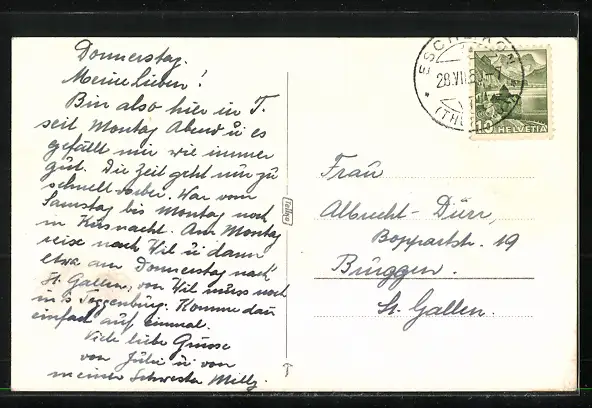 Donnerstag.
Meine Lieben!
Bin also hier in T.
seit Montag Abend u es
gefällt mir wie immer
gut. Die Zeit geht nur zu
schnell vorbei. War vom
Samstag bis Montag noch
in Küsnacht. Am Montag
reise nach Wil u dann
etwa am Donnerstag nach
St. Gallen, von Wil muss noch
in's Toggenburg. Komme dan
einfach auf einmal.
Viele liebe Grüsse
von Julie u von
meiner Schwester Milly.
Frau
Albrecht-Dürr,
Boppartstr. 19
Bruggen.
St. Gallen.
ESCHLIKON
28.VII.
(THURG
10 HELVETIA